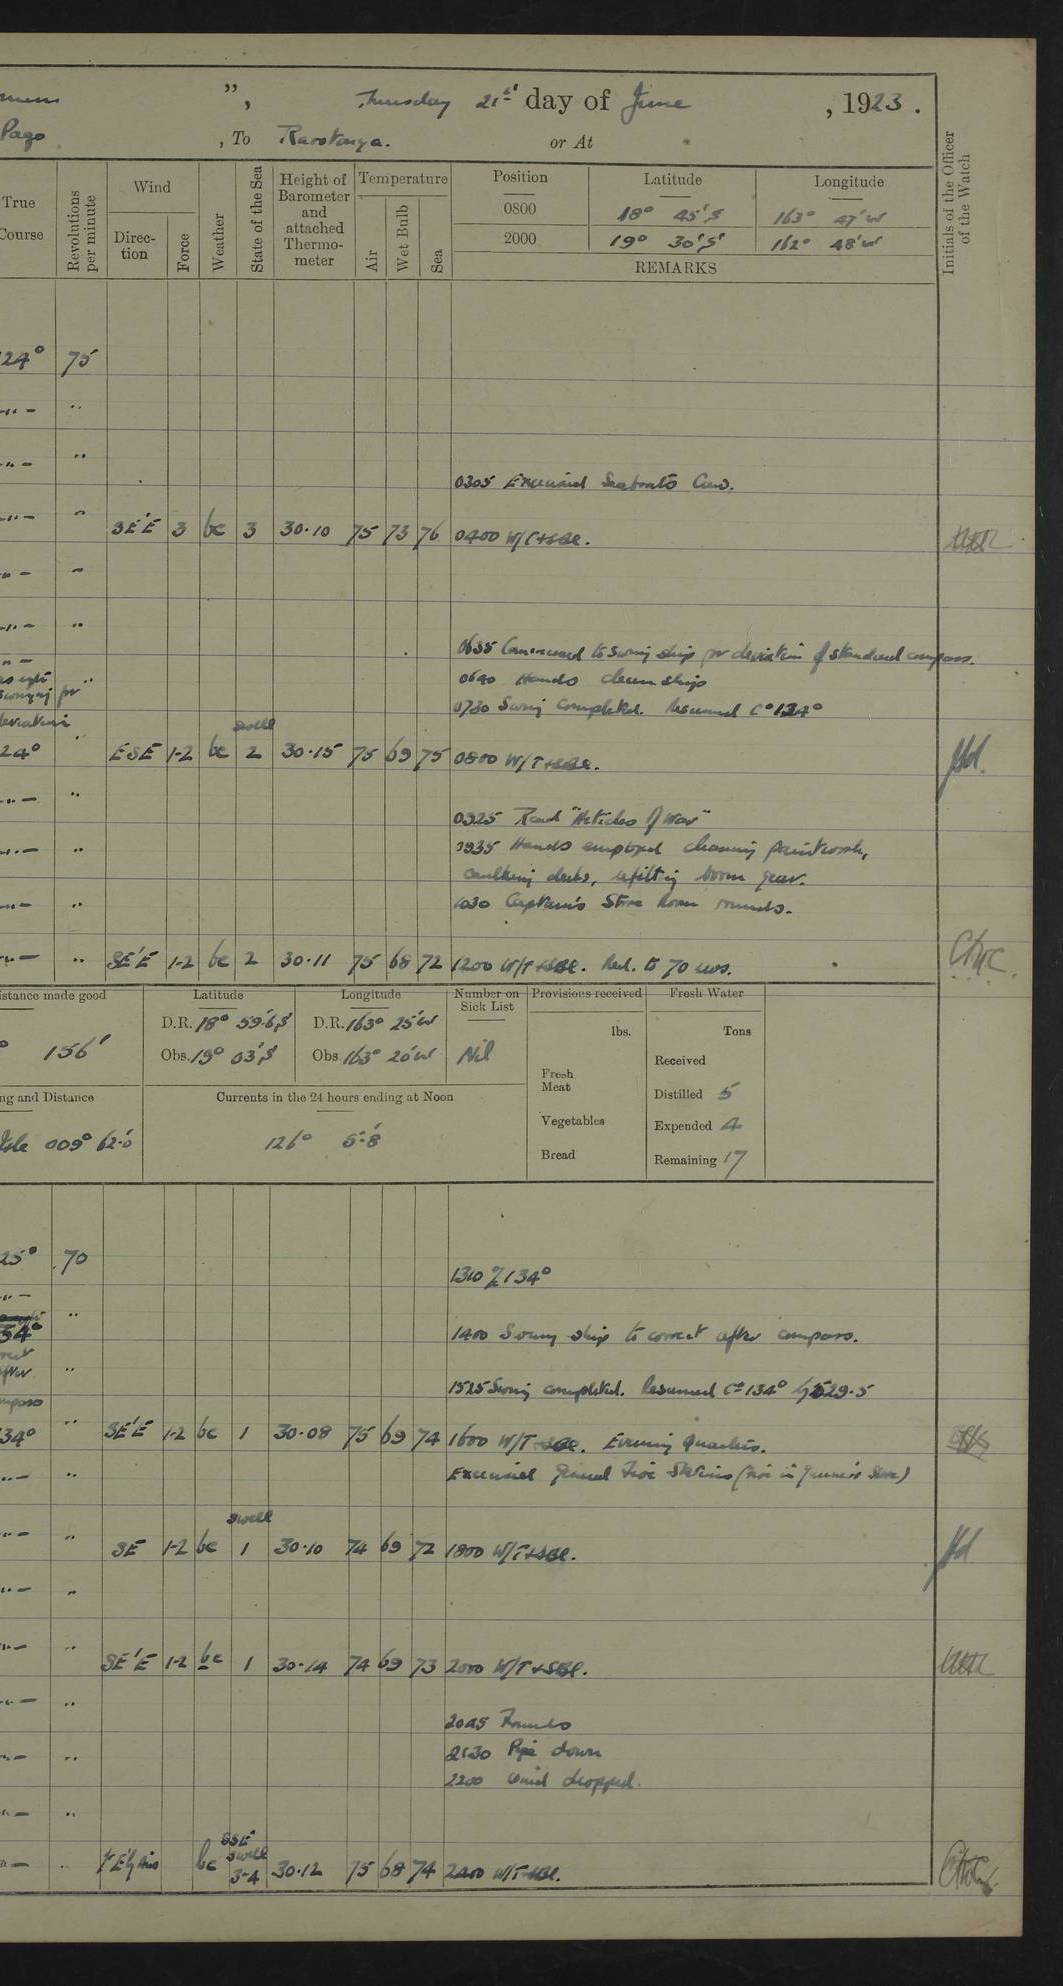 ", Thursday 21st day of June , 1923.
Pago , To Rarotonga. or At
True Course
Revolutions per minute
Wind
Direction
Force
Weather
State of the Sea
Height of Barometer and attached Thermo-meter
Temperature
Air
Wet Bulb
Sea
Position Latitude Longitude
0800 18° 45'S 163° 47'W
2000 19° 30'S 162° 48'W
REMARKS
Initials of the Officer of the Watch
24° 75
-"- "
-"- "
0305 Exercised Seaboats Crew.
-"- " SE'E 3 bc 3 30.10 75 73 76 0400 W/T
-"- "
-"- "
0635 Commenced to swing ship for deviation of standard compass.
-"-
0640 Hands clean ship
swinging for "
0730 Swing Completed. Resumed Co 124°
deviation
swell
24° " ESE 1-2 bc 2 30.15 75 69 75 0800 W/T
-"- "
0925 Read "Articles of War"
-"- " 0935 Hands employed cleaning paintwork,
caulking decks, refitting boom gear.
-"- " 1030 Captain's Store Room rounds.
-"- " SE'E 1-2 bc 2 30.11 75 68 72 1200 W/T Red. to 70 revs.
istance made good Latitude Longitude Number on Sick List Provisions received Fresh Water
D.R. 18° 59.6'S D.R. 163° 25'W lbs. Tons
° 156' Obs. 19° 03'S Obs 163° 20'W Nil Received
Fresh Meat
ng and Distance Currents in the 24 hours ending at Noon Distilled 5
Vegetables Expended 4
009° 62.0 126° 5.8' Bread Remaining 17
25° 70
1310 134°
-"-
34° " 1400 Swung ship to correct after compass.
after "
1525 Swing completed. Resumed Co 134°
34° " SE'E 1-2 bc 1 30.08 75 69 74 1600 W/T Evening Quarters.
-"- " Exercised General Fire Stations (Fire in Gunner's Store)
swell
-"- " SE 1-2 bc 1 30.10 74 69 72 1800 W/T
-"- "
-"- " SE'E 1-2 bc 1 30.14 74 69 73 2000 W/T
-"- "
2045 Rounds
-"- " 2130 Pipe down
2200 Wind dropped.
-"- "
SSE
swell
-"- bc 3-4 30.12 75 68 74 2400 W/T